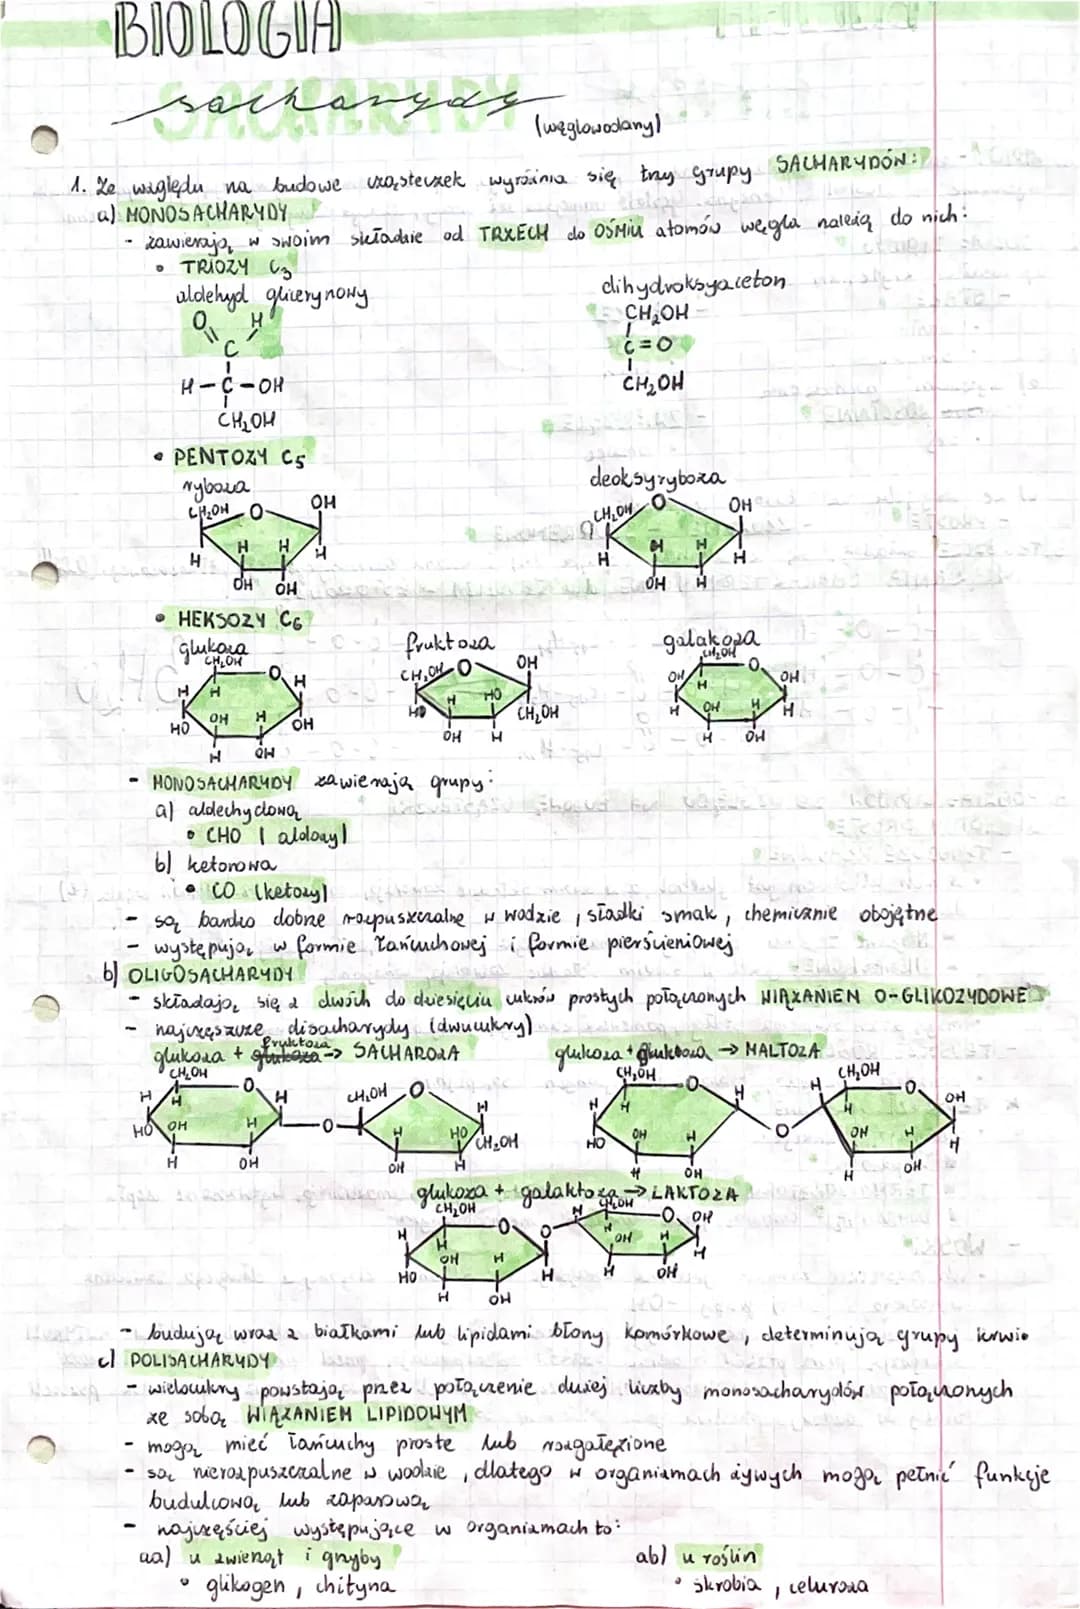 BIOLOGIA
sacharydy
SACHARYDY
(węglowodany)
1. Ze względu na budowe cząsteczek wyróżnia się trzy grupy SACHARYDÓW:
a) MONOSACHARYDY
- zawierają w swoim składzie od TRZECH do OŚMIU atomów węgla należą do nich:
• TRIOZY C3
aldehyd glicerynowy dihydroksyaceton
O H CH2OH
C C=O
H-C-OH CH2OH
CH2OH
• PENTOZY C5
ryboza deoksyryboza
CH2OH O OH CH2OH O OH
H H H H H H H H
OH OH OH H
• HEKSOZY C6
glukoza fruktoza galakoza
CH2OH O H CH2OH O OH CH2OH O OH
H H OH H HO OH H HO CH2OH OH H OH H H H
H OH OH H H OH
- MONOSACHARYDY zawierają grupy:
a) aldechydową
• CHO (aldozy)
b) ketonowa
• CO (ketozy)
- są bardzo dobrze rozpuszczalne w wodzie, słodki smak, chemicznie obojętne
- występują w formie łańcuchowej i formie pierścieniowej
b) OLIGOSACHARYDY
- składają się z dwóch do dziesięciu cukrów prostych połączonych WIĄZANIEM O-GLIKOZYDOWE
- najczęszcze disacharydy (dwucukry)
glukoza + fruktoza -> SACHAROZA glukoza + glukoza -> MALTOZA
CH2OH O H CH2OH O H CH2OH O H H CH2OH O OH
H H HO OH H O H HO CH2OH H H HO OH H O H OH H H
H OH OH H H OH H OH
glukoza + galaktoza -> LAKTOZA
CH2OH O O H CH2OH O OH
H H OH H HO H H OH H H
H OH H OH
- budują wraz z białkami lub lipidami błony komórkowe, determinują grupy krwi
c) POLISACHARYDY
- wielocukry powstają przez połączenie dużej liczby monosacharydów połączonych
ze sobą WIĄZANIEM LIPIDOWYM
- mogą mieć łańcuchy proste lub rozgałęzione
- są nierozpuszczalne w wodzie, dlatego w organizmach żywych mogą pełnić funkcje
budulcową lub zapasową
- najczęściej występujące w organizmach to:
aa) u zwierząt i grzyby ab) u roślin
• glikogen, chityna • skrobia, celuroza